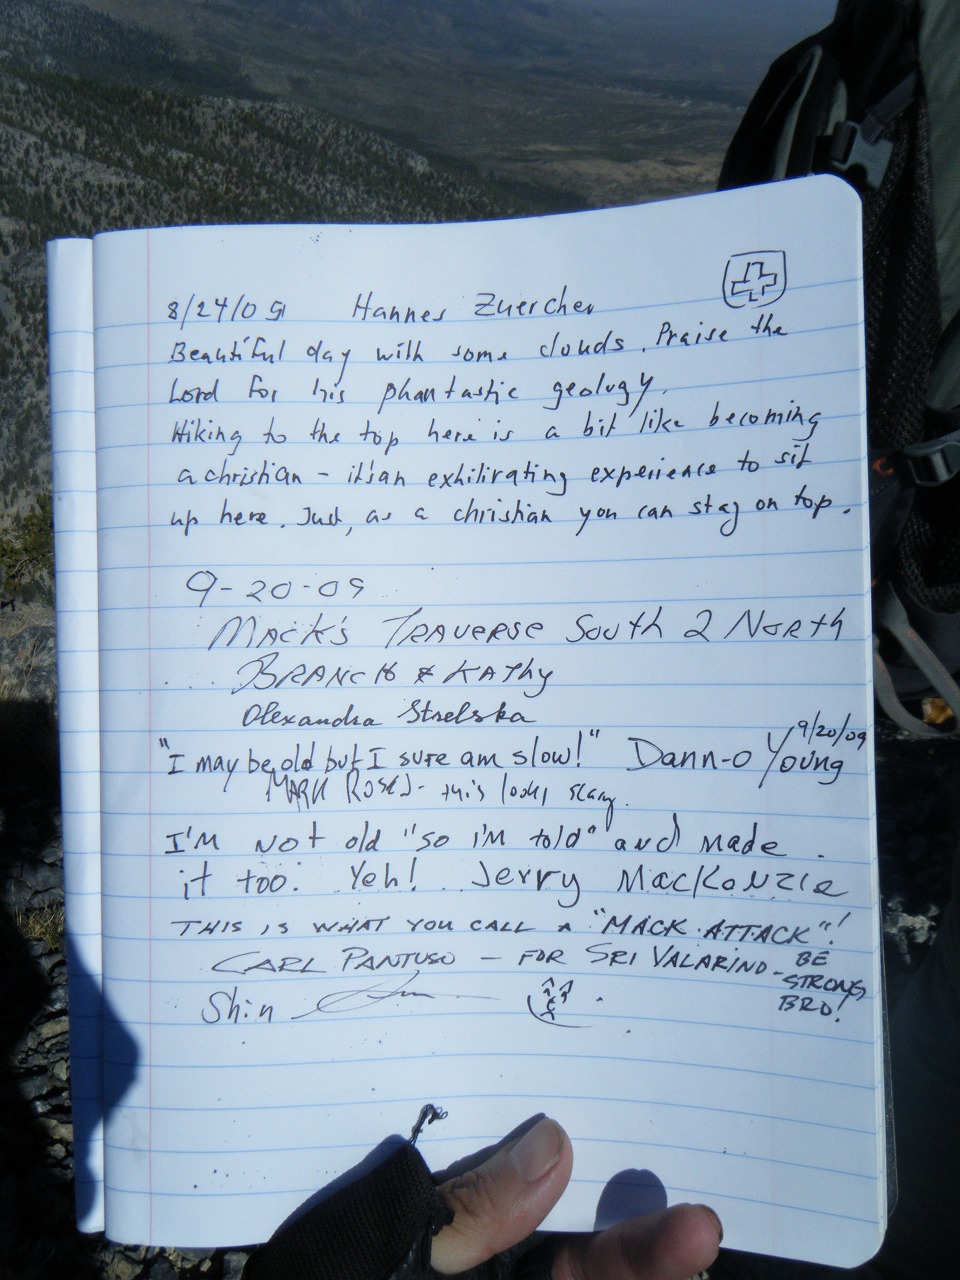 8/24/09 Hannes Zuercher
Beautiful day with some clouds. Praise the
Lord for his phantastic geology.
Hiking to the top here is a bit like becoming
a christian - it's an exhilirating experience to sit
up here. Just, as a christian you can stay on top.
9-20-09
MACK'S TRAVERSE SOUTH 2 NORTH
BRANCH & KATHY
Olexandra Strelska
"I may be old but I sure am slow!" Dann-o Young 9/20/09
MARK - this looks scary.
I'M NOT old "so i'm told" and made
it too. Yeh! Jerry MacKenzie
THIS IS WHAT YOU CALL A "MACK ATTACK"!
CARL PANTUSO - FOR SRI VALARINO - BE
STRONG,
BRO!
Shin